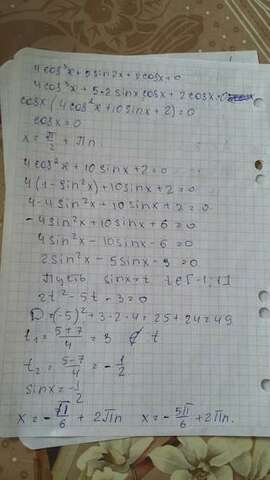 4cos³x+5sin2x+2cosx=0
4cos³x+5·2sinxcosx+2cosx=0
cosx(4cos²x+10sinx+2)=0
cosx=0
x=π/2+πn
4cos²x+10sinx+2=0
4(1-sin²x)+10sinx+2=0
4-4sin²x+10sinx+2=0
-4sin²x+10sinx+6=0
4sin²x-10sinx-6=0
2sin²x-5sinx-3=0
Пусть sinx=t t∈[-1;1]
2t²-5t-3=0
D=(-5)²+3·2·4=25+24=49
t₁=(5+7)/4=3 ∉ t
t₂=(5-7)/4=-1/2
sinx=-1/2
x=-π/6+2πn x=-5π/6+2πn.